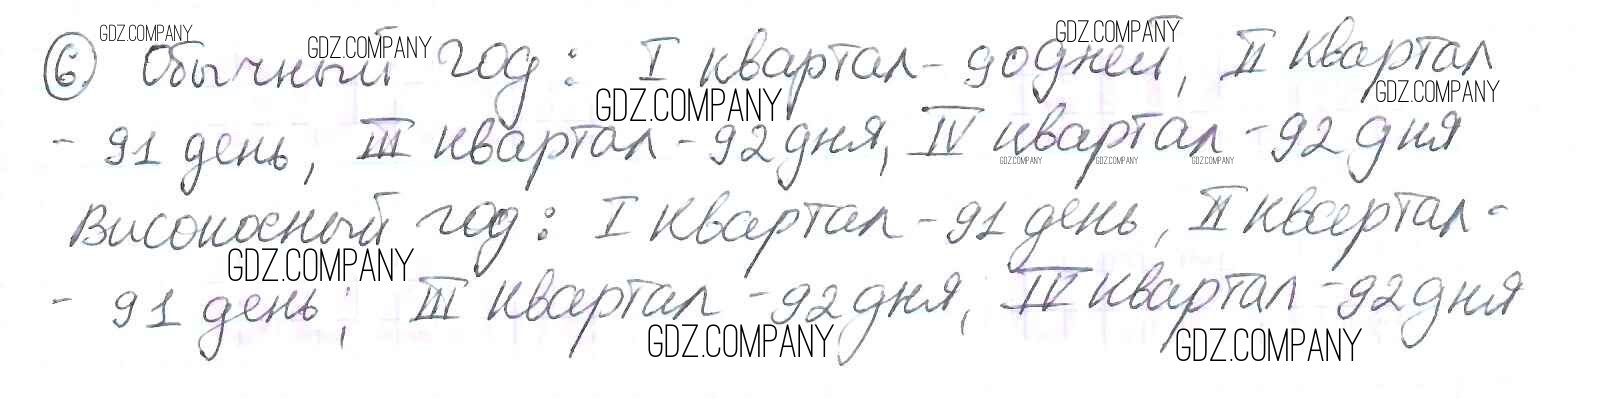 6 Обычный год: I квартал - 90 дней, II квартал
- 91 день, III квартал - 92 дня, IV квартал - 92 дня
Високосный год: I квартал - 91 день, II квартал -
- 91 день; III квартал - 92 дня, IV квартал - 92 дня
GDZ.COMPANY
GDZ.COMPANY
GDZ.COMPANY
GDZ.COMPANY
GDZ.COMPANY
GDZ.COMPANY
GDZ.COMPANY
GDZ.COMPANY
GDZ.COMPANY
GDZ.COMPANY
GDZ.COMPANY